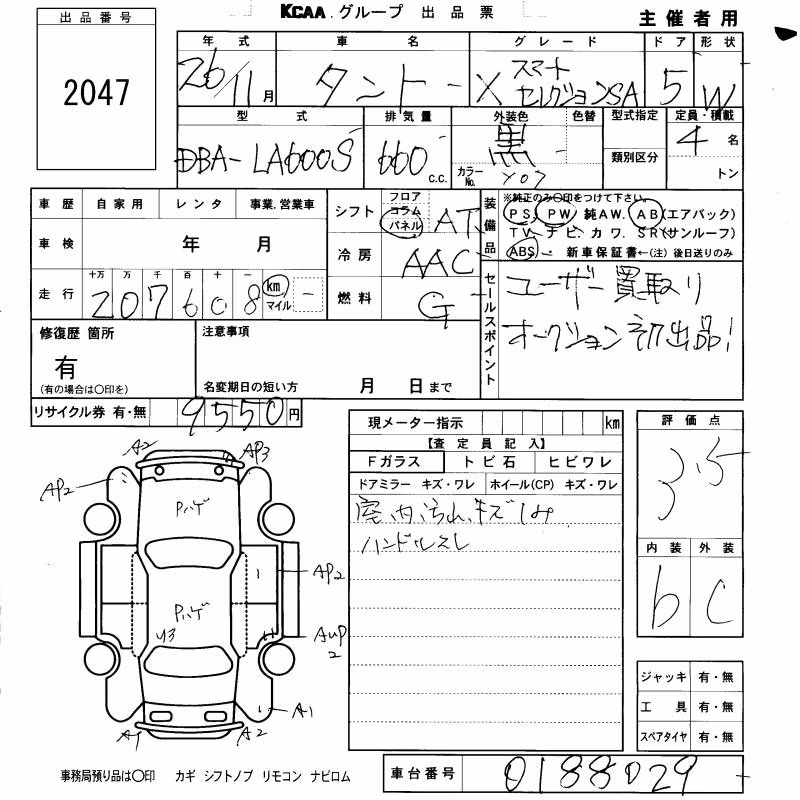 出品番号
2047
KCAA.グループ 出品票
主催者用
年式 車名 グレード ドア 形状
26/11月 タント X スマートセレクションSA 5 W
型式 排気量 外装色 色替 型式指定 定員・積載
DBA-LA600S 660 c.c. 黒 4名
カラーNo. Y07 類別区分 トン
車歴 自家用 レンタ 事業.営業車
車検 年 月
走行 十万 万 千 百 十 一
207608 km マイル
シフト フロア コラム パネル AT
冷房 AAC
燃料 G
装備品 ※純正のみ〇印をつけて下さい。
PS. PW. 純AW. AB(エアバック)
TV. ナビ. カワ. SR(サンルーフ)
ABS. 新車保証書←(注)後日送りのみ
セールスポイント
ユーザー買取り
オークション初出品!
修復歴 箇所
有
(有の場合は〇印を)
注意事項
名変期日の短い方 月 日まで
リサイクル券 有・無 9550円
現メーター指示 km
【査定員記入】
Fガラス トビ石 ヒビワレ
ドアミラー キズ・ワレ ホイール(CP) キズ・ワレ
室内汚れ.キズ.シミ
ハンドルスレ
評価点
3.5
内装 外装
b C
ジャッキ 有・無
工具 有・無
スペアタイヤ 有・無
A2
AP3
AP2
Pハゲ
AP2
Pハゲ
U3
AUP2
A1
A1
A2
事務局預り品は〇印 カギ シフトノブ リモコン ナビロム
車台番号 0188029